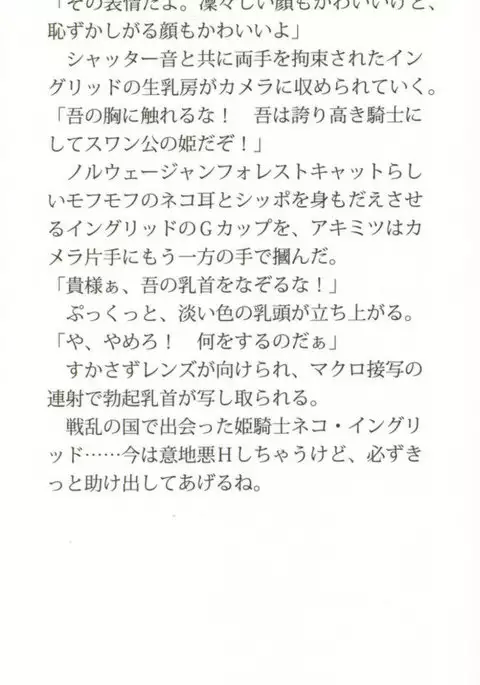 「その表情だよ。凜々しい顔もかわいいけど、
恥ずかしがる顔もかわいいよ」
　シャッター音と共に両手を拘束されたイン
グリッドの生乳房がカメラに収められていく。
「吾の胸に触れるな！　吾は誇り高き騎士に
してスワン公の姫だぞ！」
　ノルウェージャンフォレストキャットらし
いモフモフのネコ耳とシッポを身もだえさせ
るイングリッドのＧカップを、アキミツはカ
メラ片手にもう一方の手で摑んだ。
「貴様ぁ、吾の乳首をなぞるな！」
　ぷっくっと、淡い色の乳頭が立ち上がる。
「や、やめろ！　何をするのだぁ」
　すかさずレンズが向けられ、マクロ接写の
連射で勃起乳首が写し取られる。
　戦乱の国で出会った姫騎士ネコ・イングリ
ッド……今は意地悪Ｈしちゃうけど、必ずき
っと助け出してあげるね。